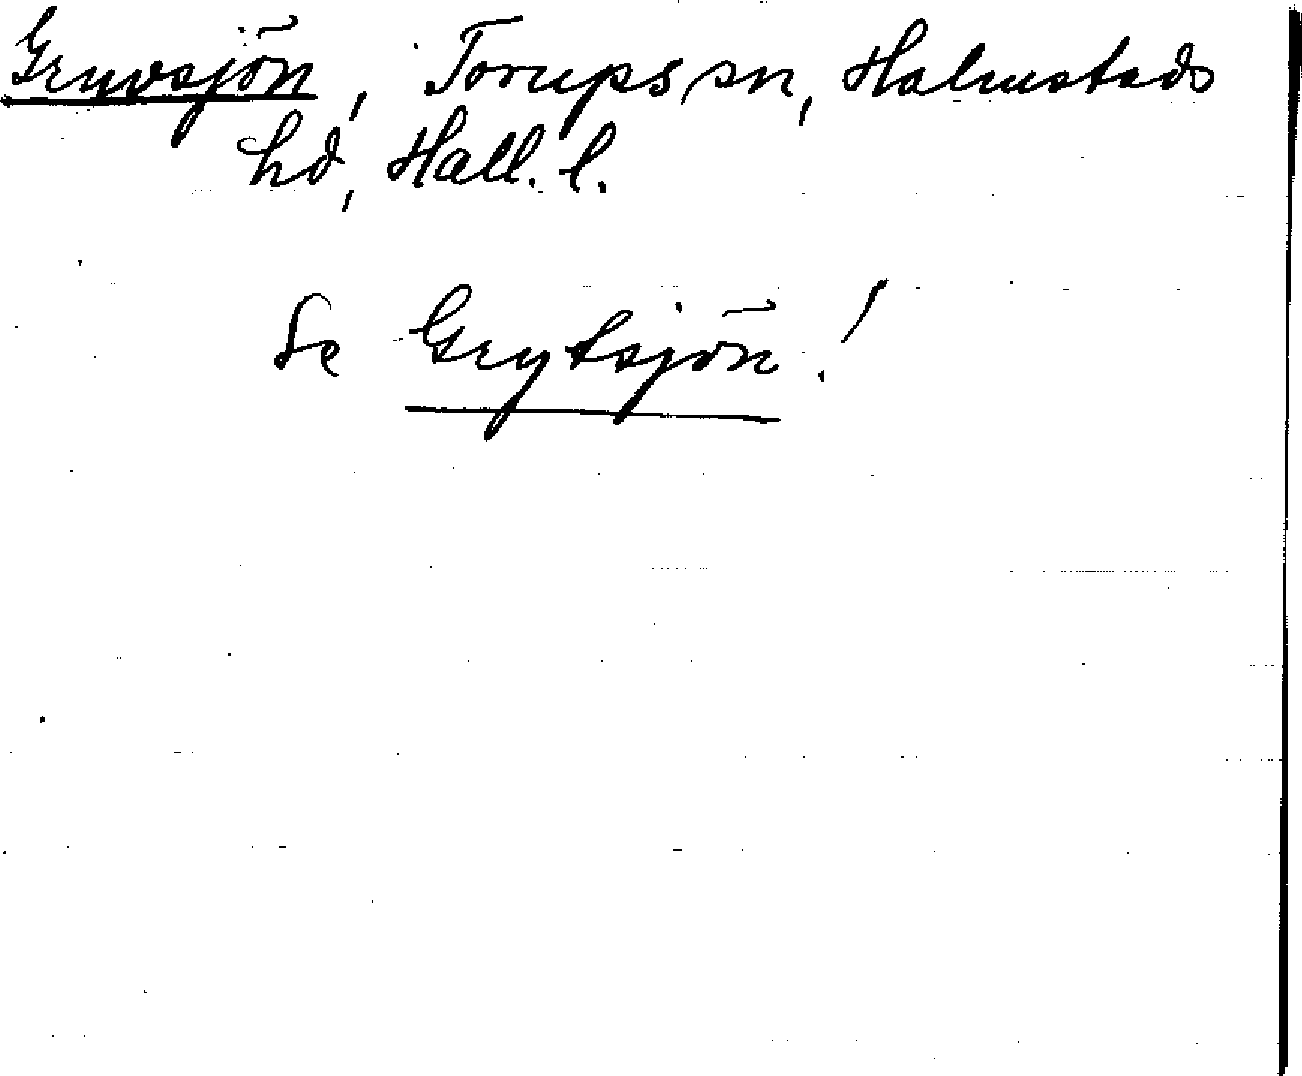 Gruvsjön, Torups sn, Halmstads
hd, Hall. l.
Se Grytsjön!